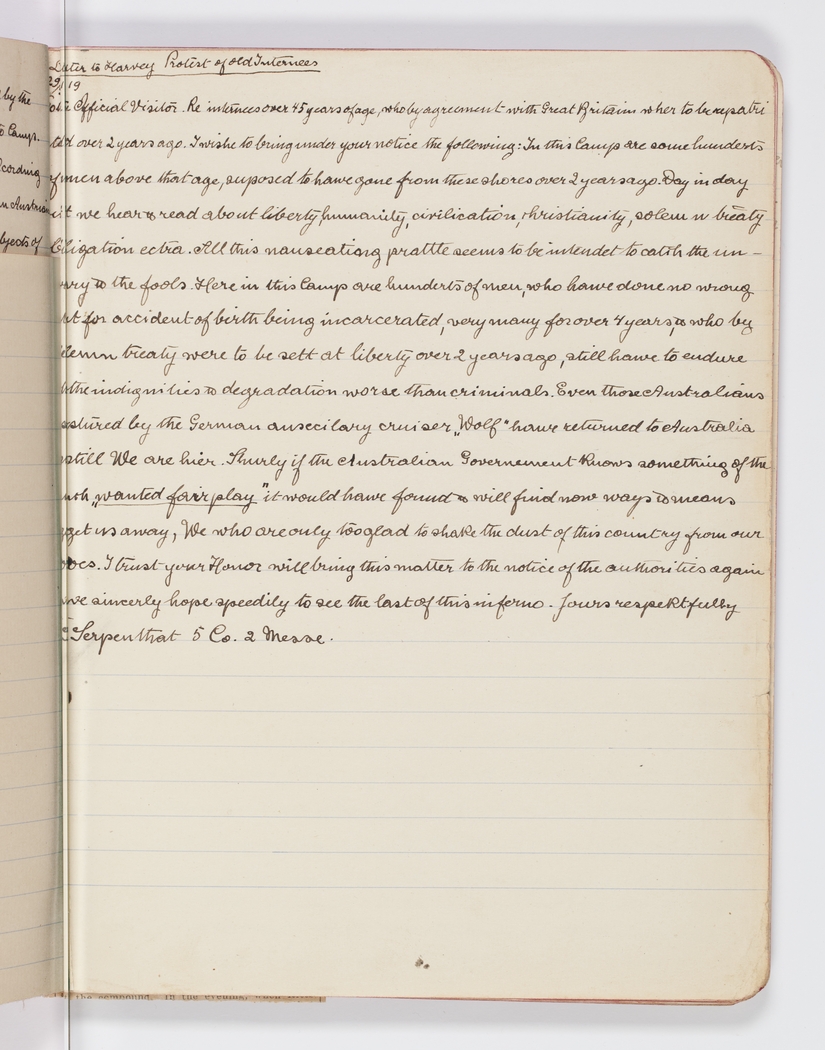 Letter to Harvey Protest of old Internees
29/1 19
by the
Official Visitor. Re internees over 45 years of age, who by agreement with Great Britain wher to be repatri
to Camp.
ted over 2 years ago. I wishe to bring under your notice the following: In this Camp are some hunderts
according
of men above that age, suposed to hawe gone from these shores over 2 years ago. Day in day
n Austrian
out we hear & read about liberty, humanity, civilication, christianity, solem n treaty
bjects of
obligation ectra. All this nauseating prattle seems to be intendet to catch the un-
wary & the fools. Here in this Camp are hunderts of men, who hawe done no wrong
but for accident of birth being incarcerated, very many for over 4 years, & who by
solemn treaty were to be sett at liberty over 2 years ago, still hawe to endure
the indignities & degradation worse than criminals. Even those Australians
captured by the German ausecilary cruiser „Wolf" hawe returned to Australia
still We are hier. Shurly if the Australian Governement knows something of the
much „wanted fair play" it would hawe found & will find now ways & means
get us away, We who are only too glad to shake the dust of this country from our
shoes. I trust your Honor will bring this matter to the notice of the authorities again
we sincerly hope speedily to see the last of this inferno. Jours respektfully
Serpenthat 5 Co. 2 Messe.
the compound. In the evening,